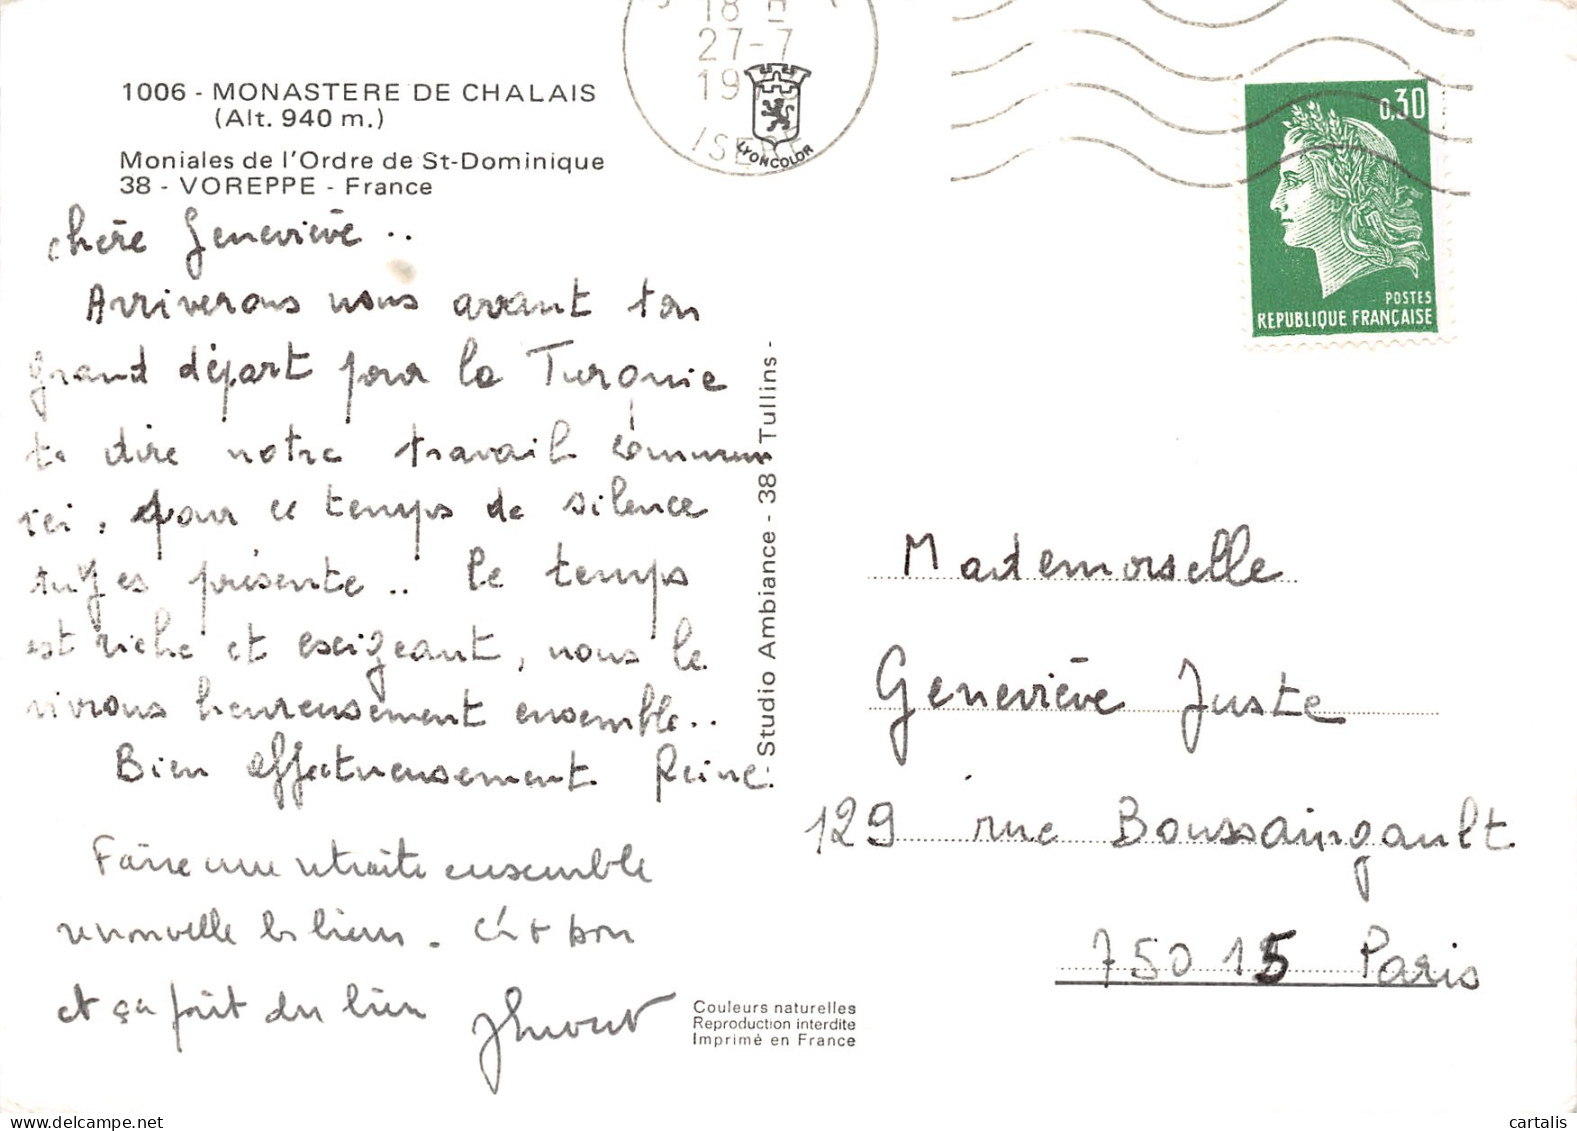 1006 - MONASTERE DE CHALAIS
(Alt. 940 m.)
Moniales de l'Ordre de St-Dominique
38 - VOREPPE - France
chère Geneviève ..
Arriverons nous avant ton
grand départ pour la Turquie
te dire notre travail commun
ici, pour ce temps de silence
tu y es présente .. le temps
est riche et exigeant, nous le
vivrons heureusement ensemble ..
Bien affectueusement Reine
Faire une retraite ensemble
renouvelle les liens. C'est bon
et ça fait du bien
Couleurs naturelles
Reproduction interdite
Imprimé en France
- Studio Ambiance - 38 Tullins -
18 H
27-7
19
ISERE
LYONCOLOR
0,30
POSTES
REPUBLIQUE FRANÇAISE
Mademoiselle
Geneviève Juste
129 rue Boussaingault
75015 Paris
cartalis